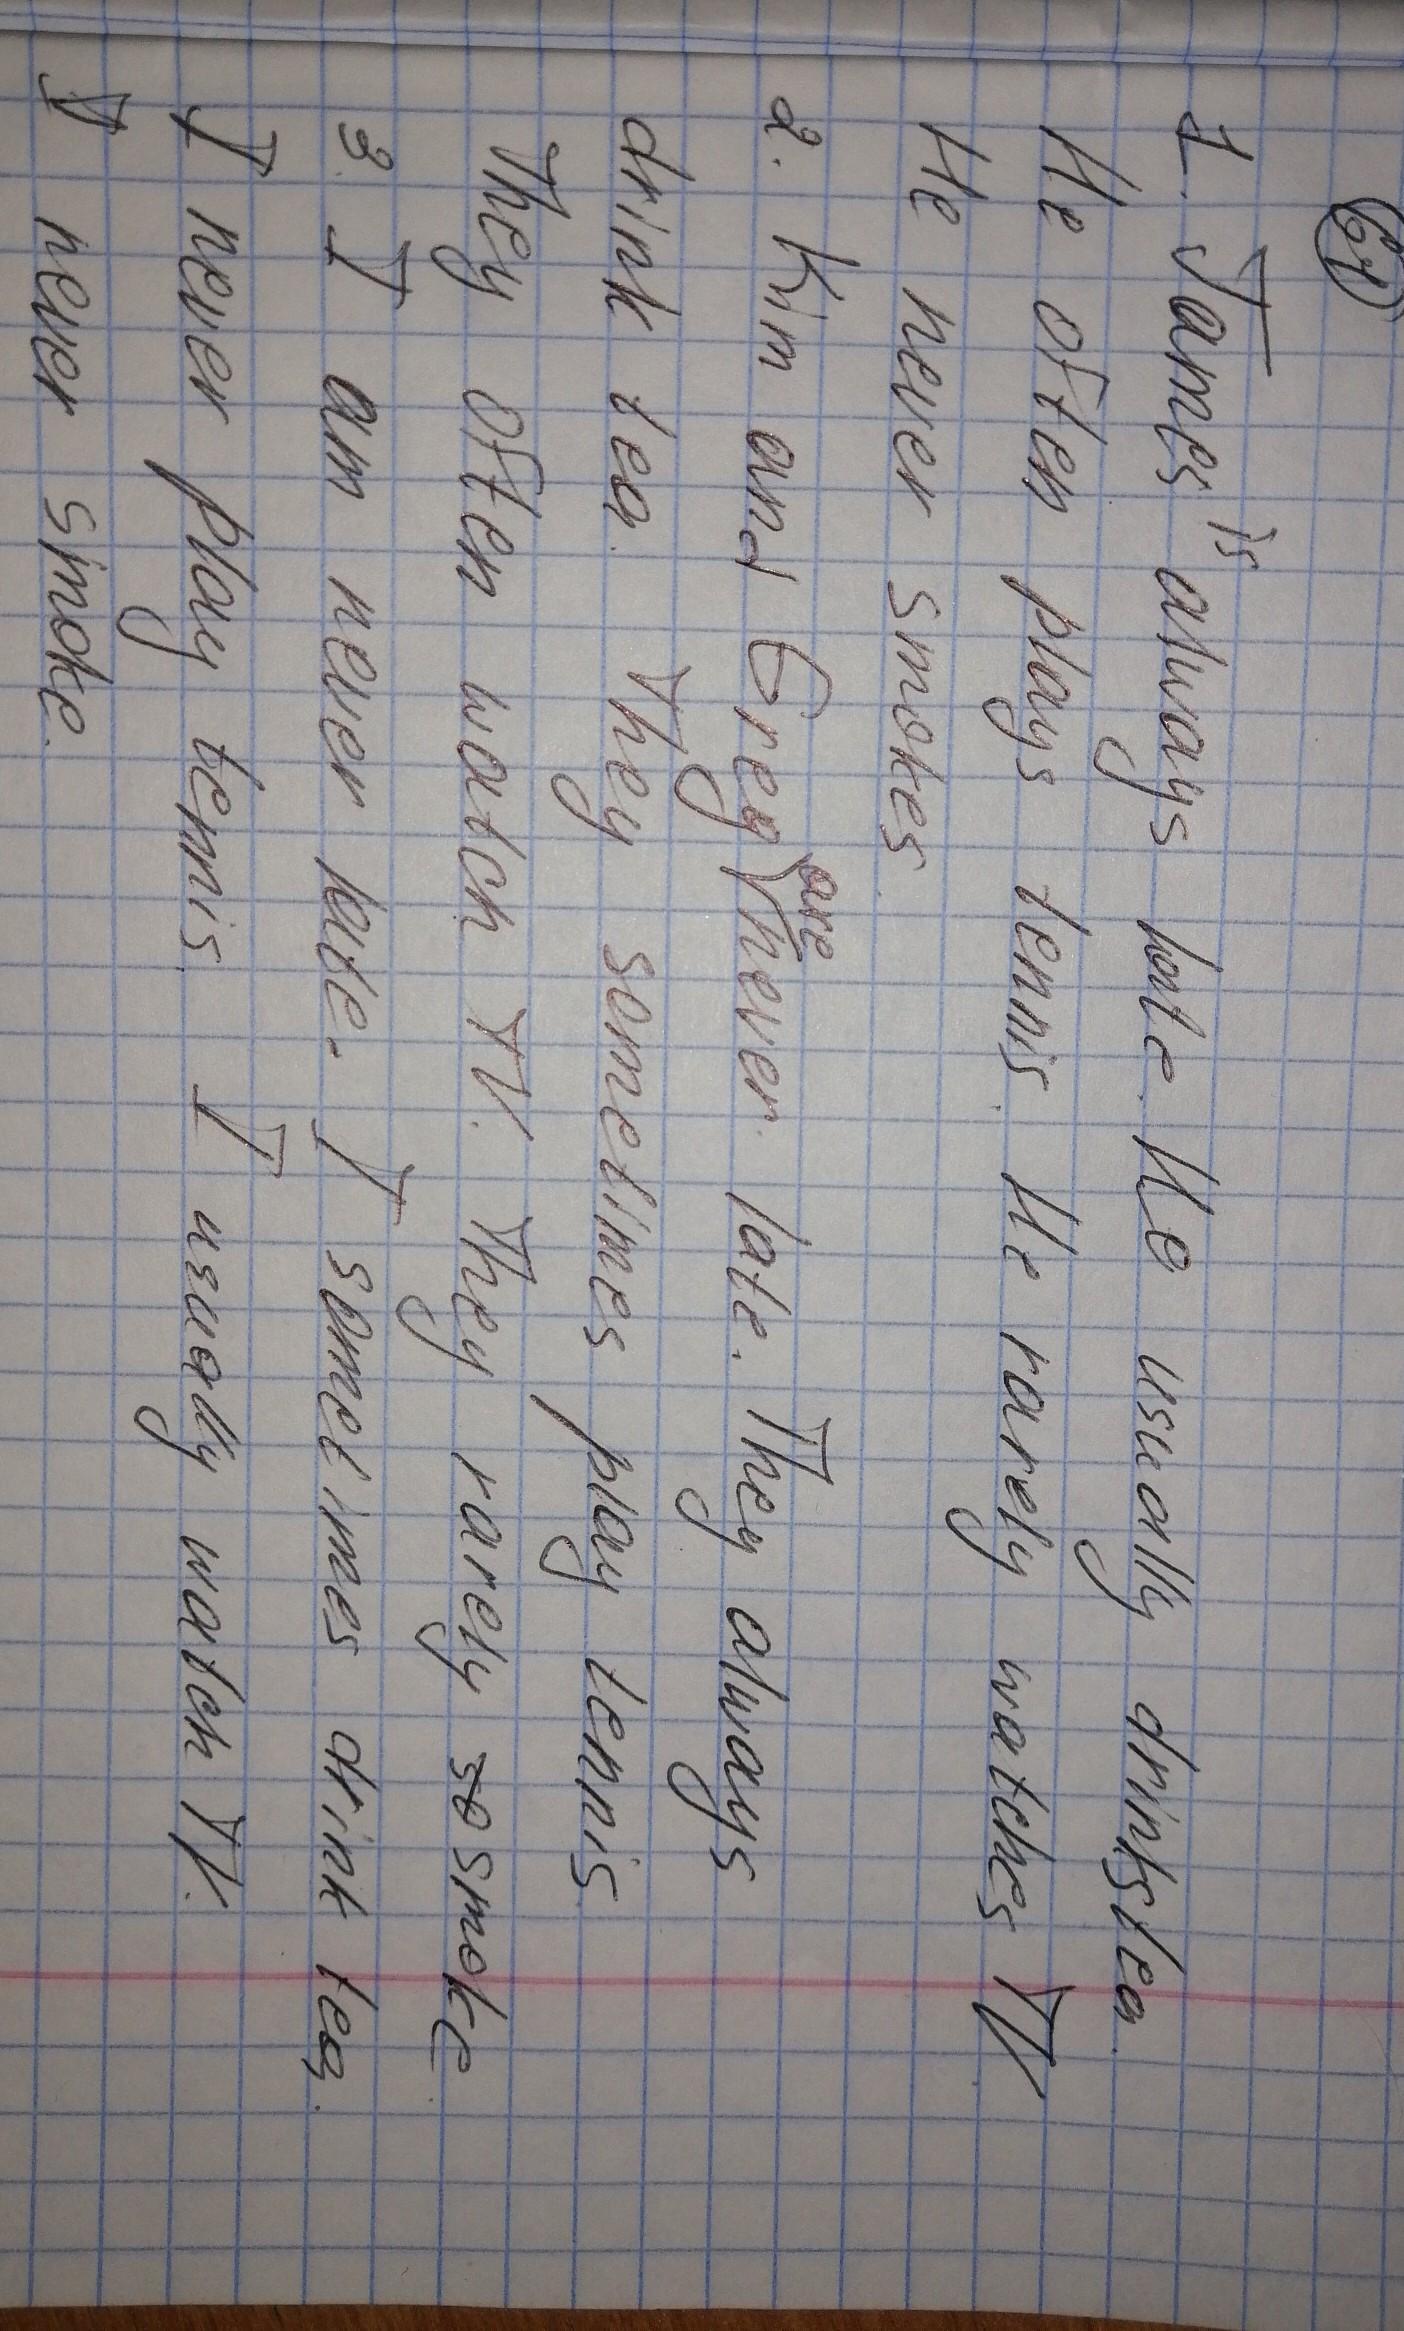 61
1. James is always late. He usually drinks tea.
He often plays tennis. He rarely watches TV.
He never smokes.
2. Kim and Greg are never late. They always
drink tea. They sometimes play tennis.
They often watch TV. They rarely so smoke.
3. I am never late. I sometimes drink tea.
I never play tennis. I usually watch TV.
I never smoke.